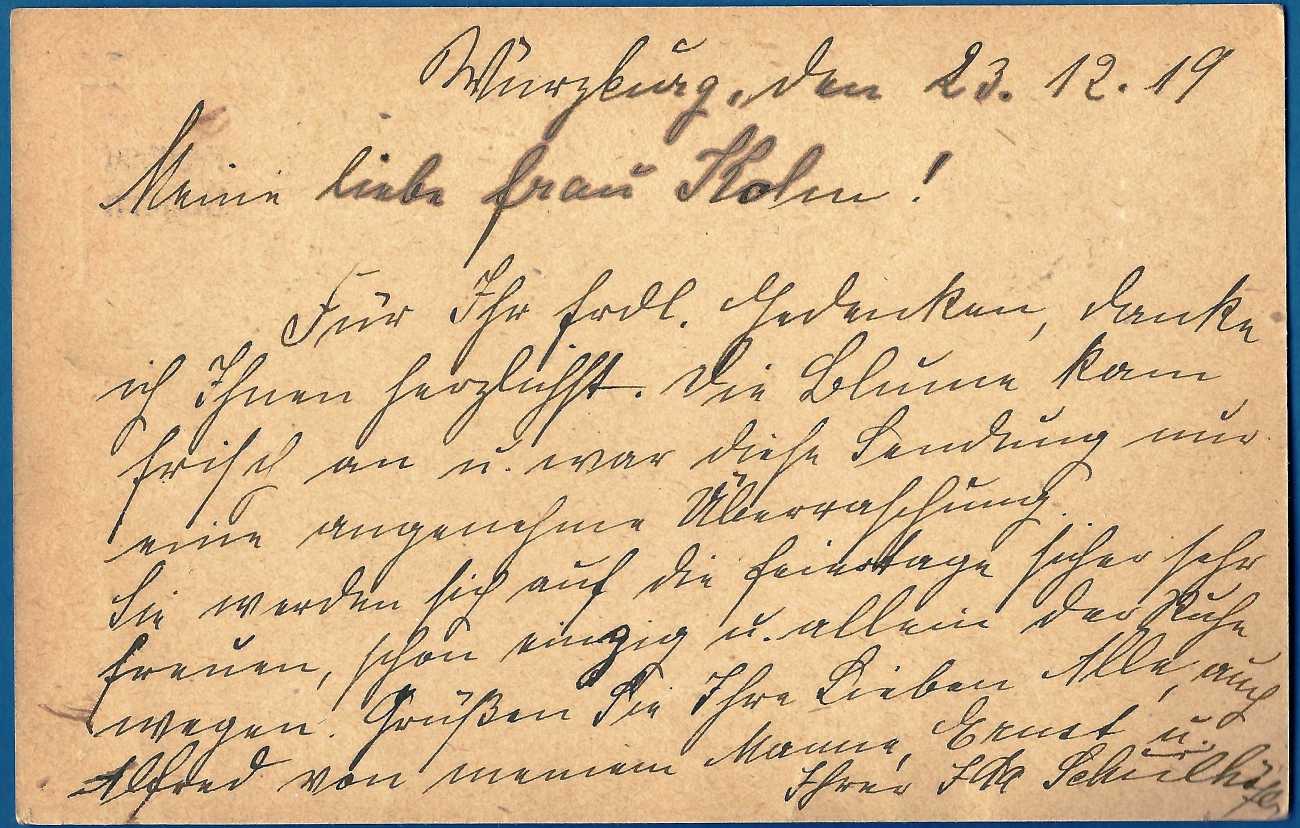 Würzburg, den 23. 12. 19
Meine liebe Frau Kolm!
Für Ihr frdl. Gedenken, danke
ich Ihnen herzlichst. Die Blume kam
frisch an u. war diese Sendung mir
eine angenehme Überraschung.
Sie werden sich auf die Feiertage sicher sehr
freuen, schon einzig u. allein der Ruhe
wegen. Grüßen Sie Ihre Lieben Alle, auch
Alfred von meinem Manne, Ernst u.
Ihrer Ida Schulhöfer